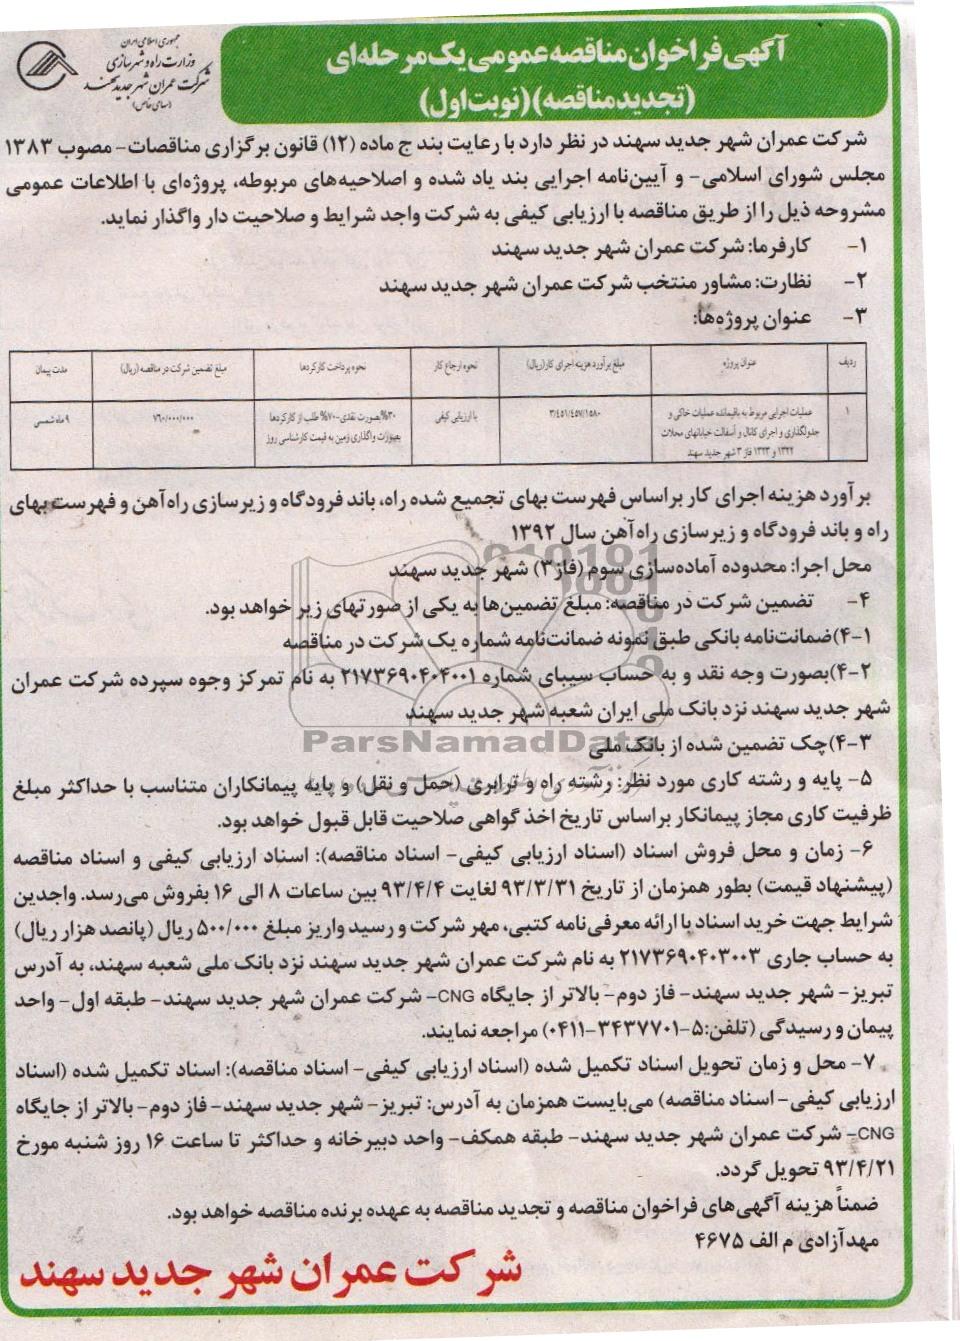 جمهوری اسلامی ایران
وزارت راه و شهرسازی
شرکت عمران شهر جدید سهند
(سهامی خاص)
آگهی فراخوان مناقصه عمومی یک مرحله‌ای
(تجدید مناقصه) (نوبت اول)
شرکت عمران شهر جدید سهند در نظر دارد با رعایت بند ج ماده (۱۲) قانون برگزاری مناقصات- مصوب ۱۳۸۳
مجلس شورای اسلامی- و آیین‌نامه اجرایی بند یاد شده و اصلاحیه‌های مربوطه، پروژه‌ای با اطلاعات عمومی
مشروحه ذیل را از طریق مناقصه با ارزیابی کیفی به شرکت واجد شرایط و صلاحیت دار واگذار نماید.
۱- کارفرما: شرکت عمران شهر جدید سهند
۲- نظارت: مشاور منتخب شرکت عمران شهر جدید سهند
۳- عنوان پروژه‌ها:
ردیف عنوان پروژه مبلغ برآورد هزینه اجرای کار(ریال) نحوه ارجاع کار نحوه پرداخت کارکردها مبلغ تضمین شرکت در مناقصه (ریال) مدت پیمان
۱ عملیات اجرایی مربوط به باقیمانده عملیات خاکی و ۳/۴۵۱/۴۵۷/۱۵۸۰ با ارزیابی کیفی ۳۰%بصورت نقدی-۷۰% طلب از کارکردها ۷۶۰/۰۰۰/۰۰۰ ۹ ماه شمسی
جدولگذاری و اجرای کانال و آسفالت خیابانهای محلات بصورت واگذاری زمین به قیمت کارشناسی روز
۱۳۲۲ و ۱۳۲۳ فاز ۳ شهر جدید سهند
برآورد هزینه اجرای کار براساس فهرست بهای تجمیع شده راه، باند فرودگاه و زیرسازی راه‌آهن و فهرست بهای
راه و باند فرودگاه و زیرسازی راه‌آهن سال ۱۳۹۲
محل اجرا: محدوده آماده‌سازی سوم (فاز۳) شهر جدید سهند
۴- تضمین شرکت در مناقصه: مبلغ تضمین‌ها به یکی از صورتهای زیر خواهد بود.
۴-۱)ضمانت‌نامه بانکی طبق نمونه ضمانت‌نامه شماره یک شرکت در مناقصه
۴-۲)بصورت وجه نقد و به حساب سیبای شماره ۲۱۷۳۶۹۰۴۰۴۰۰۱ به نام تمرکز وجوه سپرده شرکت عمران
شهر جدید سهند نزد بانک ملی ایران شعبه شهر جدید سهند
۴-۳)چک تضمین شده از بانک ملی
ParsNamadData
۵- پایه و رشته کاری مورد نظر: رشته راه و ترابری (حمل و نقل) و پایه پیمانکاران متناسب با حداکثر مبلغ
ظرفیت کاری مجاز پیمانکار براساس تاریخ اخذ گواهی صلاحیت قابل قبول خواهد بود.
۶- زمان و محل فروش اسناد (اسناد ارزیابی کیفی- اسناد مناقصه): اسناد ارزیابی کیفی و اسناد مناقصه
(پیشنهاد قیمت) بطور همزمان از تاریخ ۹۳/۳/۳۱ لغایت ۹۳/۴/۴ بین ساعات ۸ الی ۱۶ بفروش می‌رسد. واجدین
شرایط جهت خرید اسناد با ارائه معرفی‌نامه کتبی، مهر شرکت و رسید واریز مبلغ ۵۰۰/۰۰۰ ریال (پانصد هزار ریال)
به حساب جاری ۲۱۷۳۶۹۰۴۰۳۰۰۳ به نام شرکت عمران شهر جدید سهند نزد بانک ملی شعبه سهند، به آدرس
تبریز- شهر جدید سهند- فاز دوم- بالاتر از جایگاه CNG- شرکت عمران شهر جدید سهند- طبقه اول- واحد
پیمان و رسیدگی (تلفن:۵-۳۴۳۷۷۰۱-۰۴۱۱) مراجعه نمایند.
۷- محل و زمان تحویل اسناد تکمیل شده (اسناد ارزیابی کیفی- اسناد مناقصه): اسناد تکمیل شده (اسناد
ارزیابی کیفی- اسناد مناقصه) می‌بایست همزمان به آدرس: تبریز- شهر جدید سهند- فاز دوم- بالاتر از جایگاه
CNG- شرکت عمران شهر جدید سهند- طبقه همکف- واحد دبیرخانه و حداکثر تا ساعت ۱۶ روز شنبه مورخ
۹۳/۴/۲۱ تحویل گردد.
ضمناً هزینه آگهی‌های فراخوان مناقصه و تجدید مناقصه به عهده برنده مناقصه خواهد بود.
مهدآزادی م الف ۴۶۷۵
شرکت عمران شهر جدید سهند